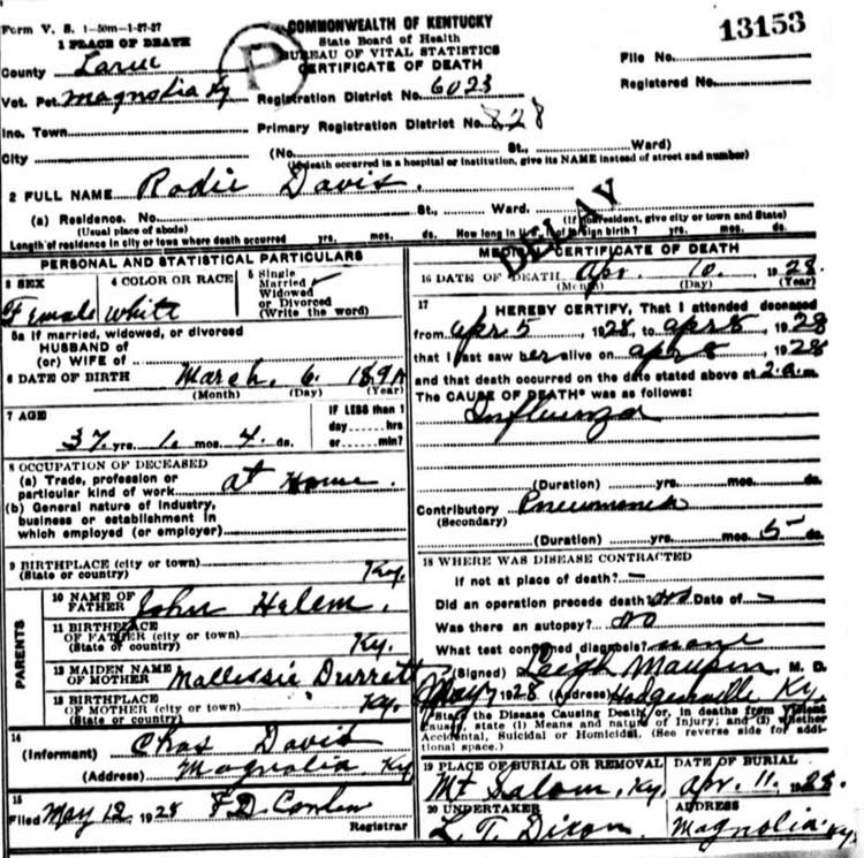 Form V. S. 1-50m-1-27-27
COMMONWEALTH OF KENTUCKY
State Board of Health
BUREAU OF VITAL STATISTICS
CERTIFICATE OF DEATH
13153
P
1 PLACE OF DEATH
County Larue
File No.
Registered No.
Vot. Pct. Magnolia Ky
Registration District No. 6023
Inc. Town
Primary Registration District No. 828
City
(No. St., Ward)
(If death occurred in a hospital or institution, give its NAME instead of street and number)
2 FULL NAME Rodie Davis.
(a) Residence. No. St., Ward.
(Usual place of abode)
(If nonresident, give city or town and State)
Length of residence in city or town where death occurred yrs. mos. ds. How long in U.S., if of foreign birth? yrs. mos. ds.
DELAY
PERSONAL AND STATISTICAL PARTICULARS
3 SEX
Female
4 COLOR OR RACE
White
5 Single
Married
Widowed
or Divorced
(Write the word)
5a If married, widowed, or divorced
HUSBAND of
(or) WIFE of
6 DATE OF BIRTH March. 6. 189
(Month) (Day) (Year)
7 AGE
37 yrs. 1. mos. 4. ds.
IF LESS than 1
day hrs
or min?
8 OCCUPATION OF DECEASED
(a) Trade, profession or
particular kind of work at Home.
(b) General nature of industry,
business or establishment in
which employed (or employer)
9 BIRTHPLACE (city or town)
(State or country) Ky.
PARENTS
10 NAME OF
FATHER John Halem.
11 BIRTHPLACE
OF FATHER (city or town)
(State or country) Ky.
12 MAIDEN NAME
OF MOTHER Mallessie Durrett
13 BIRTHPLACE
OF MOTHER (city or town)
(State or country) Ky.
14
(Informant) Chas Davis
(Address) Magnolia, Ky
15
Filed May 12, 1928 F D.
Registrar
MEDICAL CERTIFICATE OF DEATH
16 DATE OF DEATH Apr. 10. 1928.
(Month) (Day) (Year)
17
I HEREBY CERTIFY, That I attended deceased
from Apr. 5, 1928, to Apr 8, 1928
that I last saw her alive on Apr 8, 1928
and that death occurred on the date stated above at 2.a.m.
The CAUSE OF DEATH* was as follows:
Influenza
(Duration) yrs. mos. ds.
Contributory Pneumonia
(Secondary)
(Duration) yrs. mos. 5 ds.
18 WHERE WAS DISEASE CONTRACTED
If not at place of death? —
Did an operation precede death? no Date of —
Was there an autopsy? no
What test confirmed diagnosis? none
(Signed) Leigh Maupin M. D.
May 7 1928 (Address) Hodgenville Ky.
*State the Disease Causing Death, or, in deaths from Violent
Causes, state (1) Means and nature of Injury; and (2) whether
Accidental, Suicidal or Homicidal. (See reverse side for addi-
tional space.)
19 PLACE OF BURIAL OR REMOVAL
Mt Salom, Ky.
DATE OF BURIAL
Apr. 11. 1928.
20 UNDERTAKER
L. T. Dixon.
ADDRESS
Magnolia Ky.